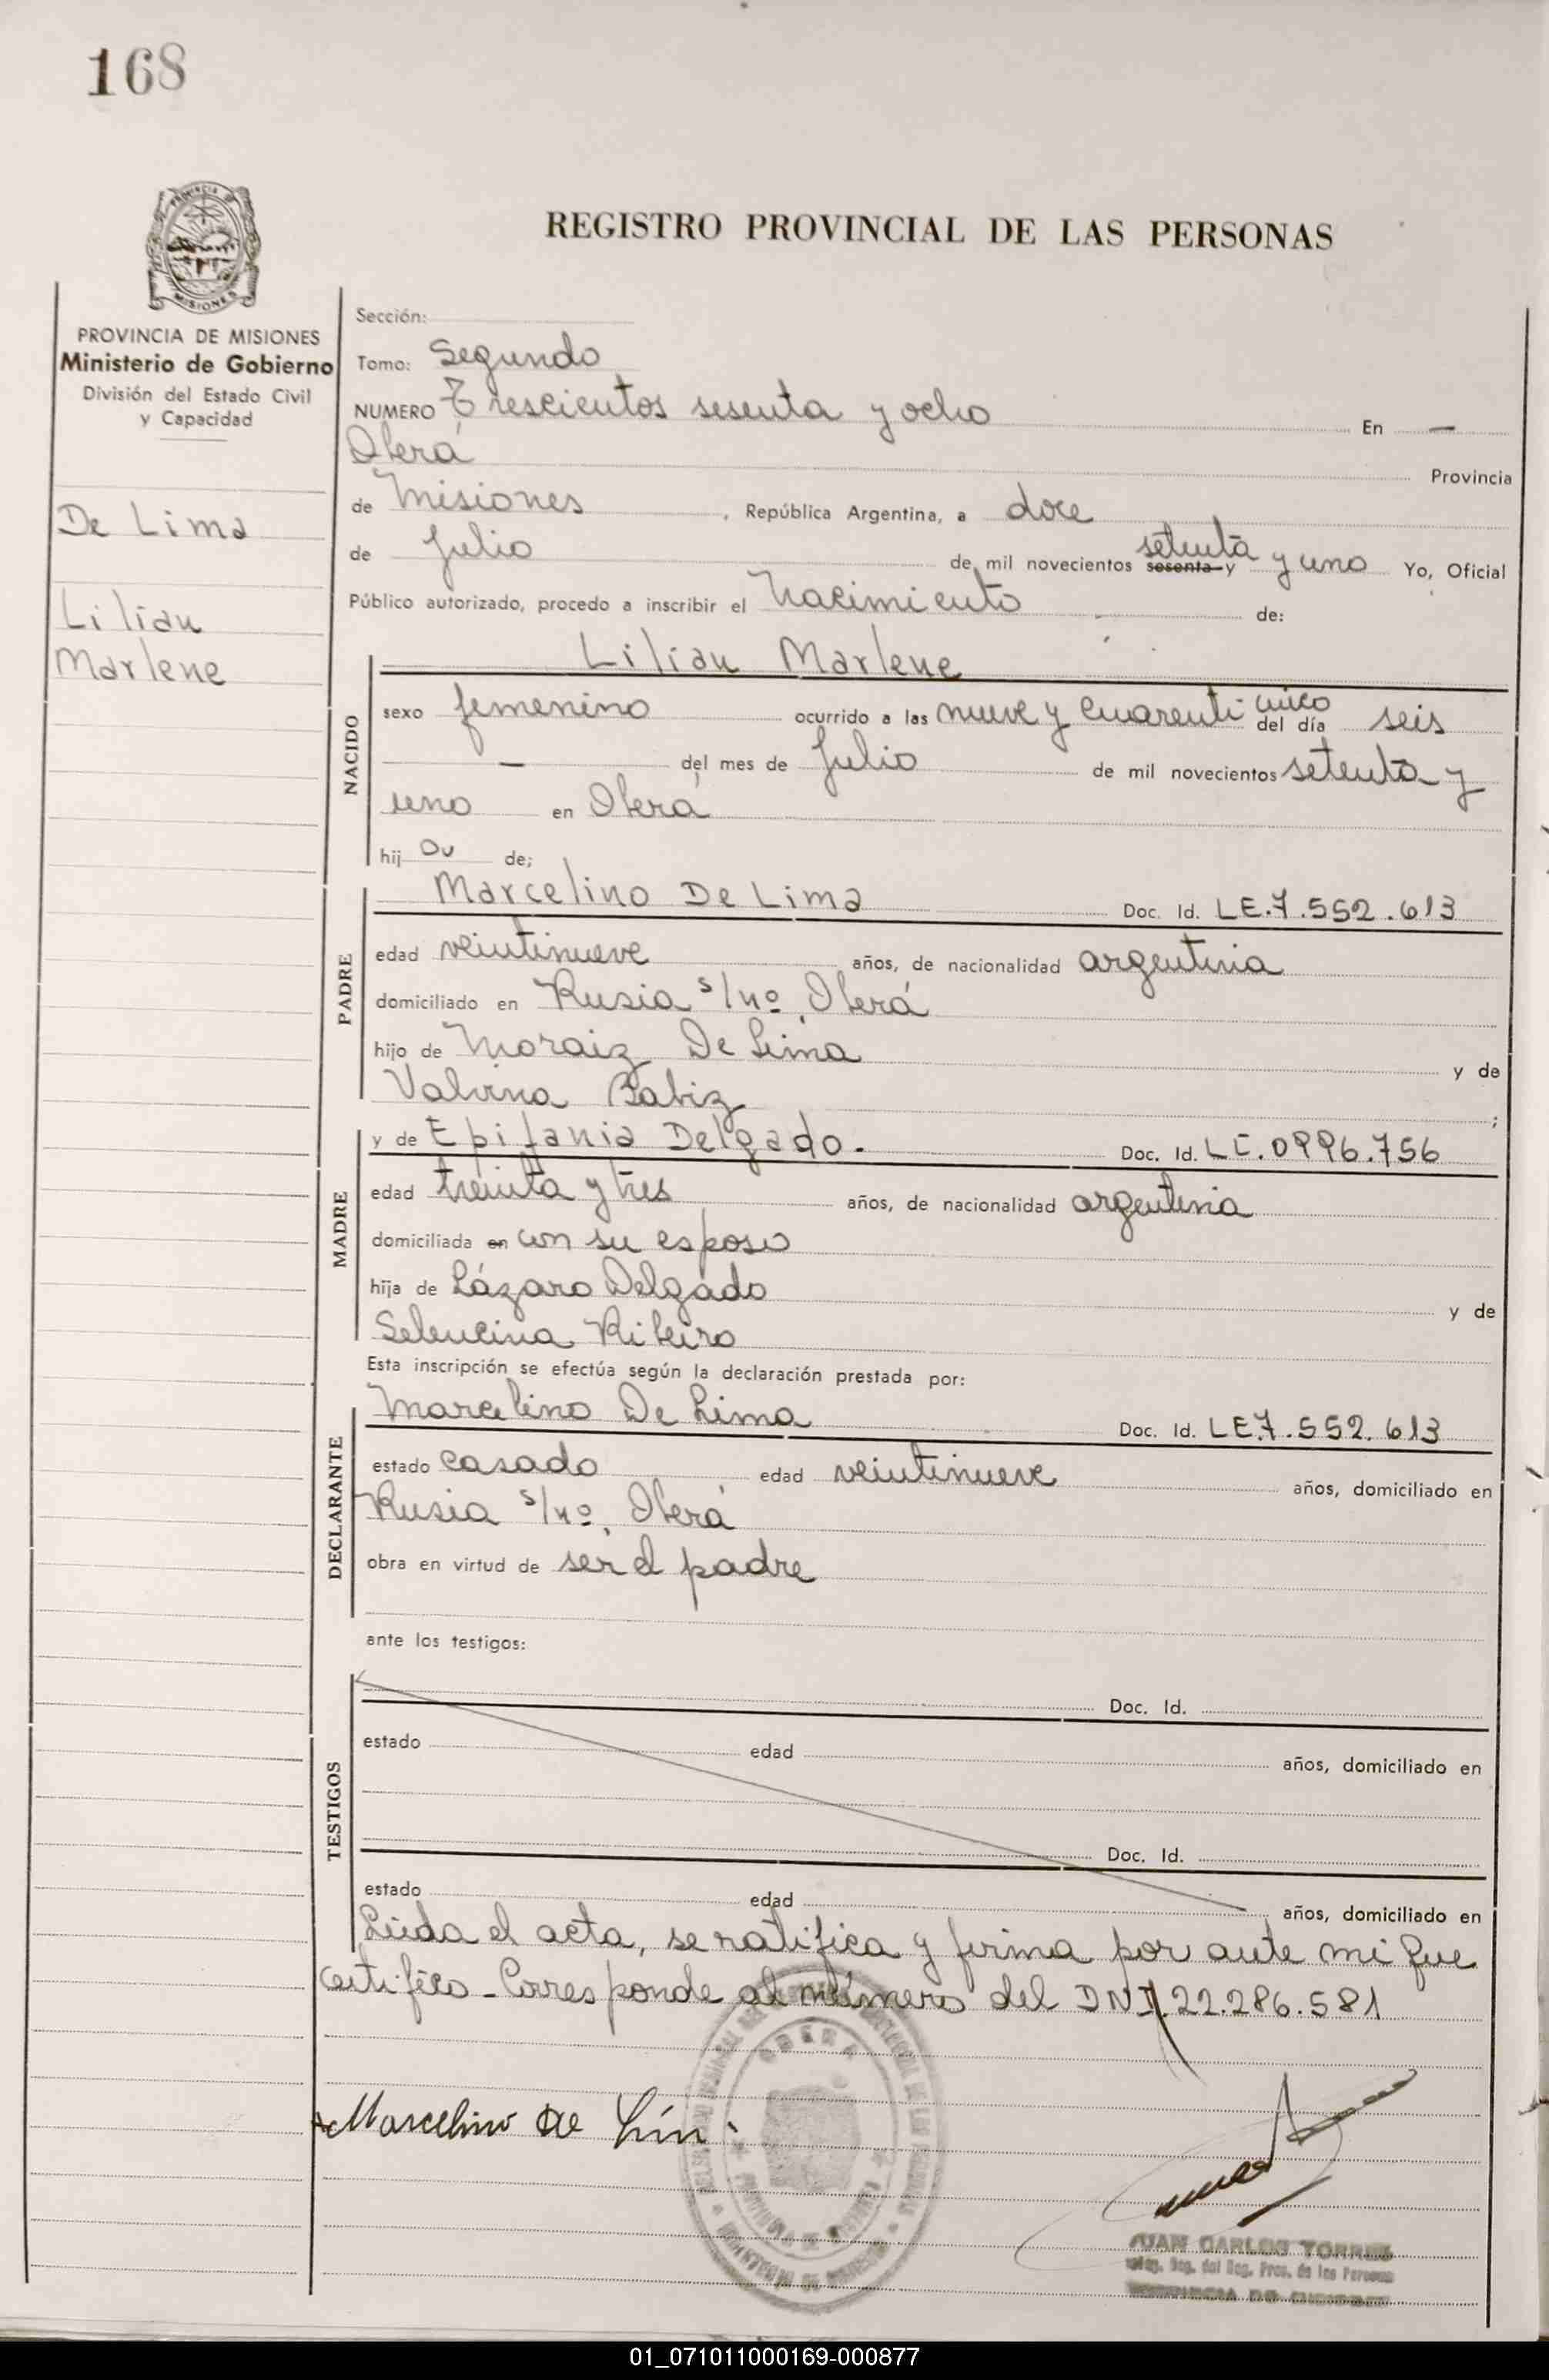 168
REGISTRO PROVINCIAL DE LAS PERSONAS
MISIONES
PROVINCIA DE MISIONES
Ministerio de Gobierno
División del Estado Civil
y Capacidad
De Lima
Lilian
Marlene
Sección:
Tomo: Segundo
NUMERO Trescientos sesenta y ocho En —
Oberá Provincia
de Misiones , República Argentina, a doce
de Julio de mil novecientos sesenta y setenta y uno Yo, Oficial
Público autorizado, procedo a inscribir el Nacimiento de:
NACIDO
Lilian Marlene
sexo femenino ocurrido a las nueve y cuarenti cinco del día seis
— del mes de Julio de mil novecientos setenta y
uno en Oberá
hij de;
PADRE
Marcelino De Lima Doc. Id. LE.7.552.613
edad veintinueve años, de nacionalidad argentina
domiciliado en Rusia s/nº, Oberá
hijo de Moraiz De Lima y de
Valvina Babiz ;
MADRE
y de Epifania Delgado. Doc. Id. LC.0996.756
edad treinta y tres años, de nacionalidad argentina
domiciliada en con su esposo
hija de Lázaro Delgado y de
Selencina Ribeiro
Esta inscripción se efectúa según la declaración prestada por:
DECLARANTE
Marcelino De Lima Doc. Id. LE.7.552.613
estado casado edad veintinueve años, domiciliado en
Rusia s/nº, Oberá
obra en virtud de ser el padre
ante los testigos:
TESTIGOS
Doc. Id.
estado edad años, domiciliado en
Doc. Id.
estado edad años, domiciliado en
Leída el acta, se ratifica y firma por ante mi que
certifico - Corresponde al número del DNI.22.286.581
OBERA
Marcelino De Lim
JUAN CARLOS TORRES
01_071011000169-000877